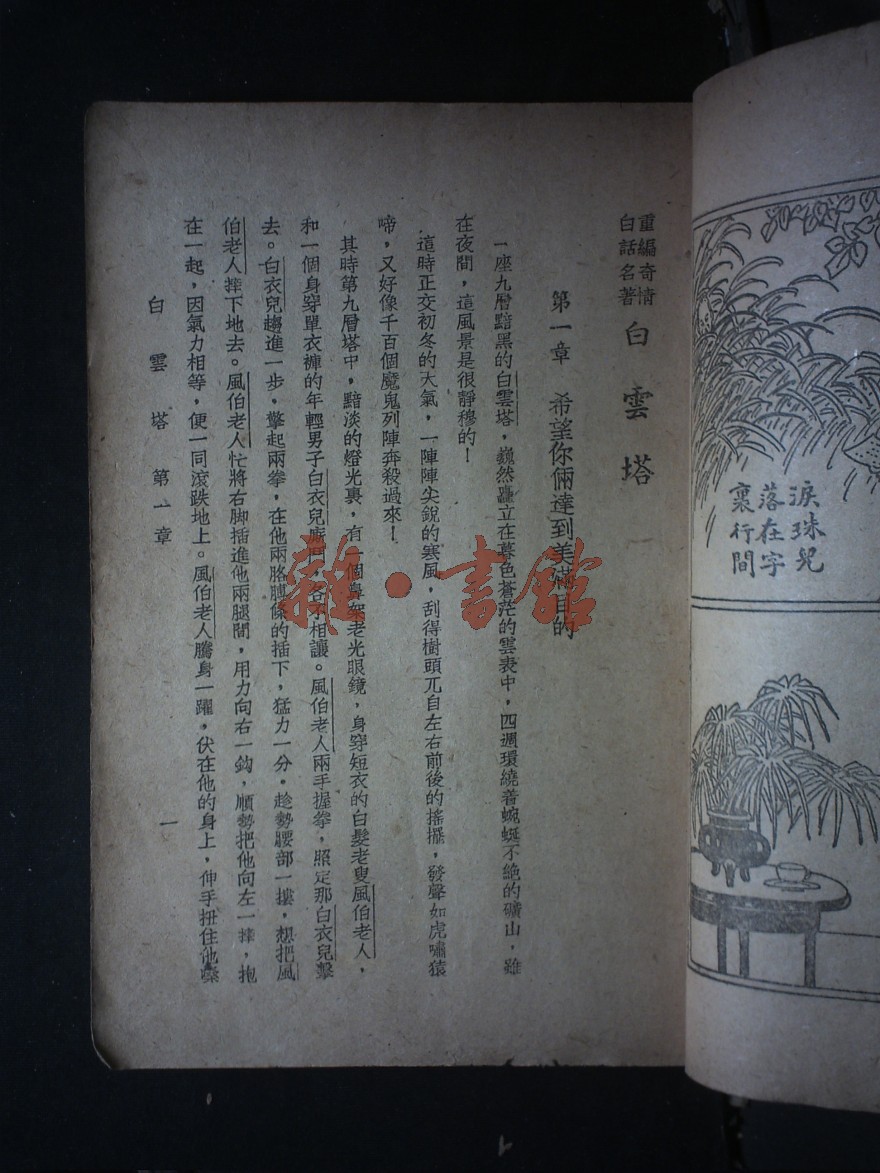 淚珠兒
落在字
裏行間
重編奇情
白話名著
白雲塔
第一章 希望你倆達到美滿目的
一座九層黯黑的白雲塔，巍然矗立在暮色蒼茫的雲表中，四週環繞着蜿蜒不絕的礦山，雖
在夜間，這風景是很靜穆的！
這時正交初冬的天氣，一陣陣尖銳的寒風，刮得樹頭兀自左右前後的搖擺，發聲如虎嘯猿
啼，又好像千百個魔鬼列陣奔殺過來！
其時第九層塔中，黯淡的燈光裏，有一個鼻架老光眼鏡，身穿短衣的白髮老叟風伯老人，
和一個身穿單衣褲的年輕男子白衣兒廝鬥，各不相讓。風伯老人兩手握拳，照定那白衣兒擊
去。白衣兒趨進一步，擎起兩拳，在他兩胳膊條的插下，猛力一分。趁勢腰部一摟，想把風
伯老人摔下地去。風伯老人忙將右脚插進他兩腿間，用力向右一鈎，順勢把他向左一摔，抱
在一起，因氣力相等，便一同滾跌地上。風伯老人騰身一躍，伏在他的身上，伸手扭住他嗓
白雲塔 第一章
一
雜·書館